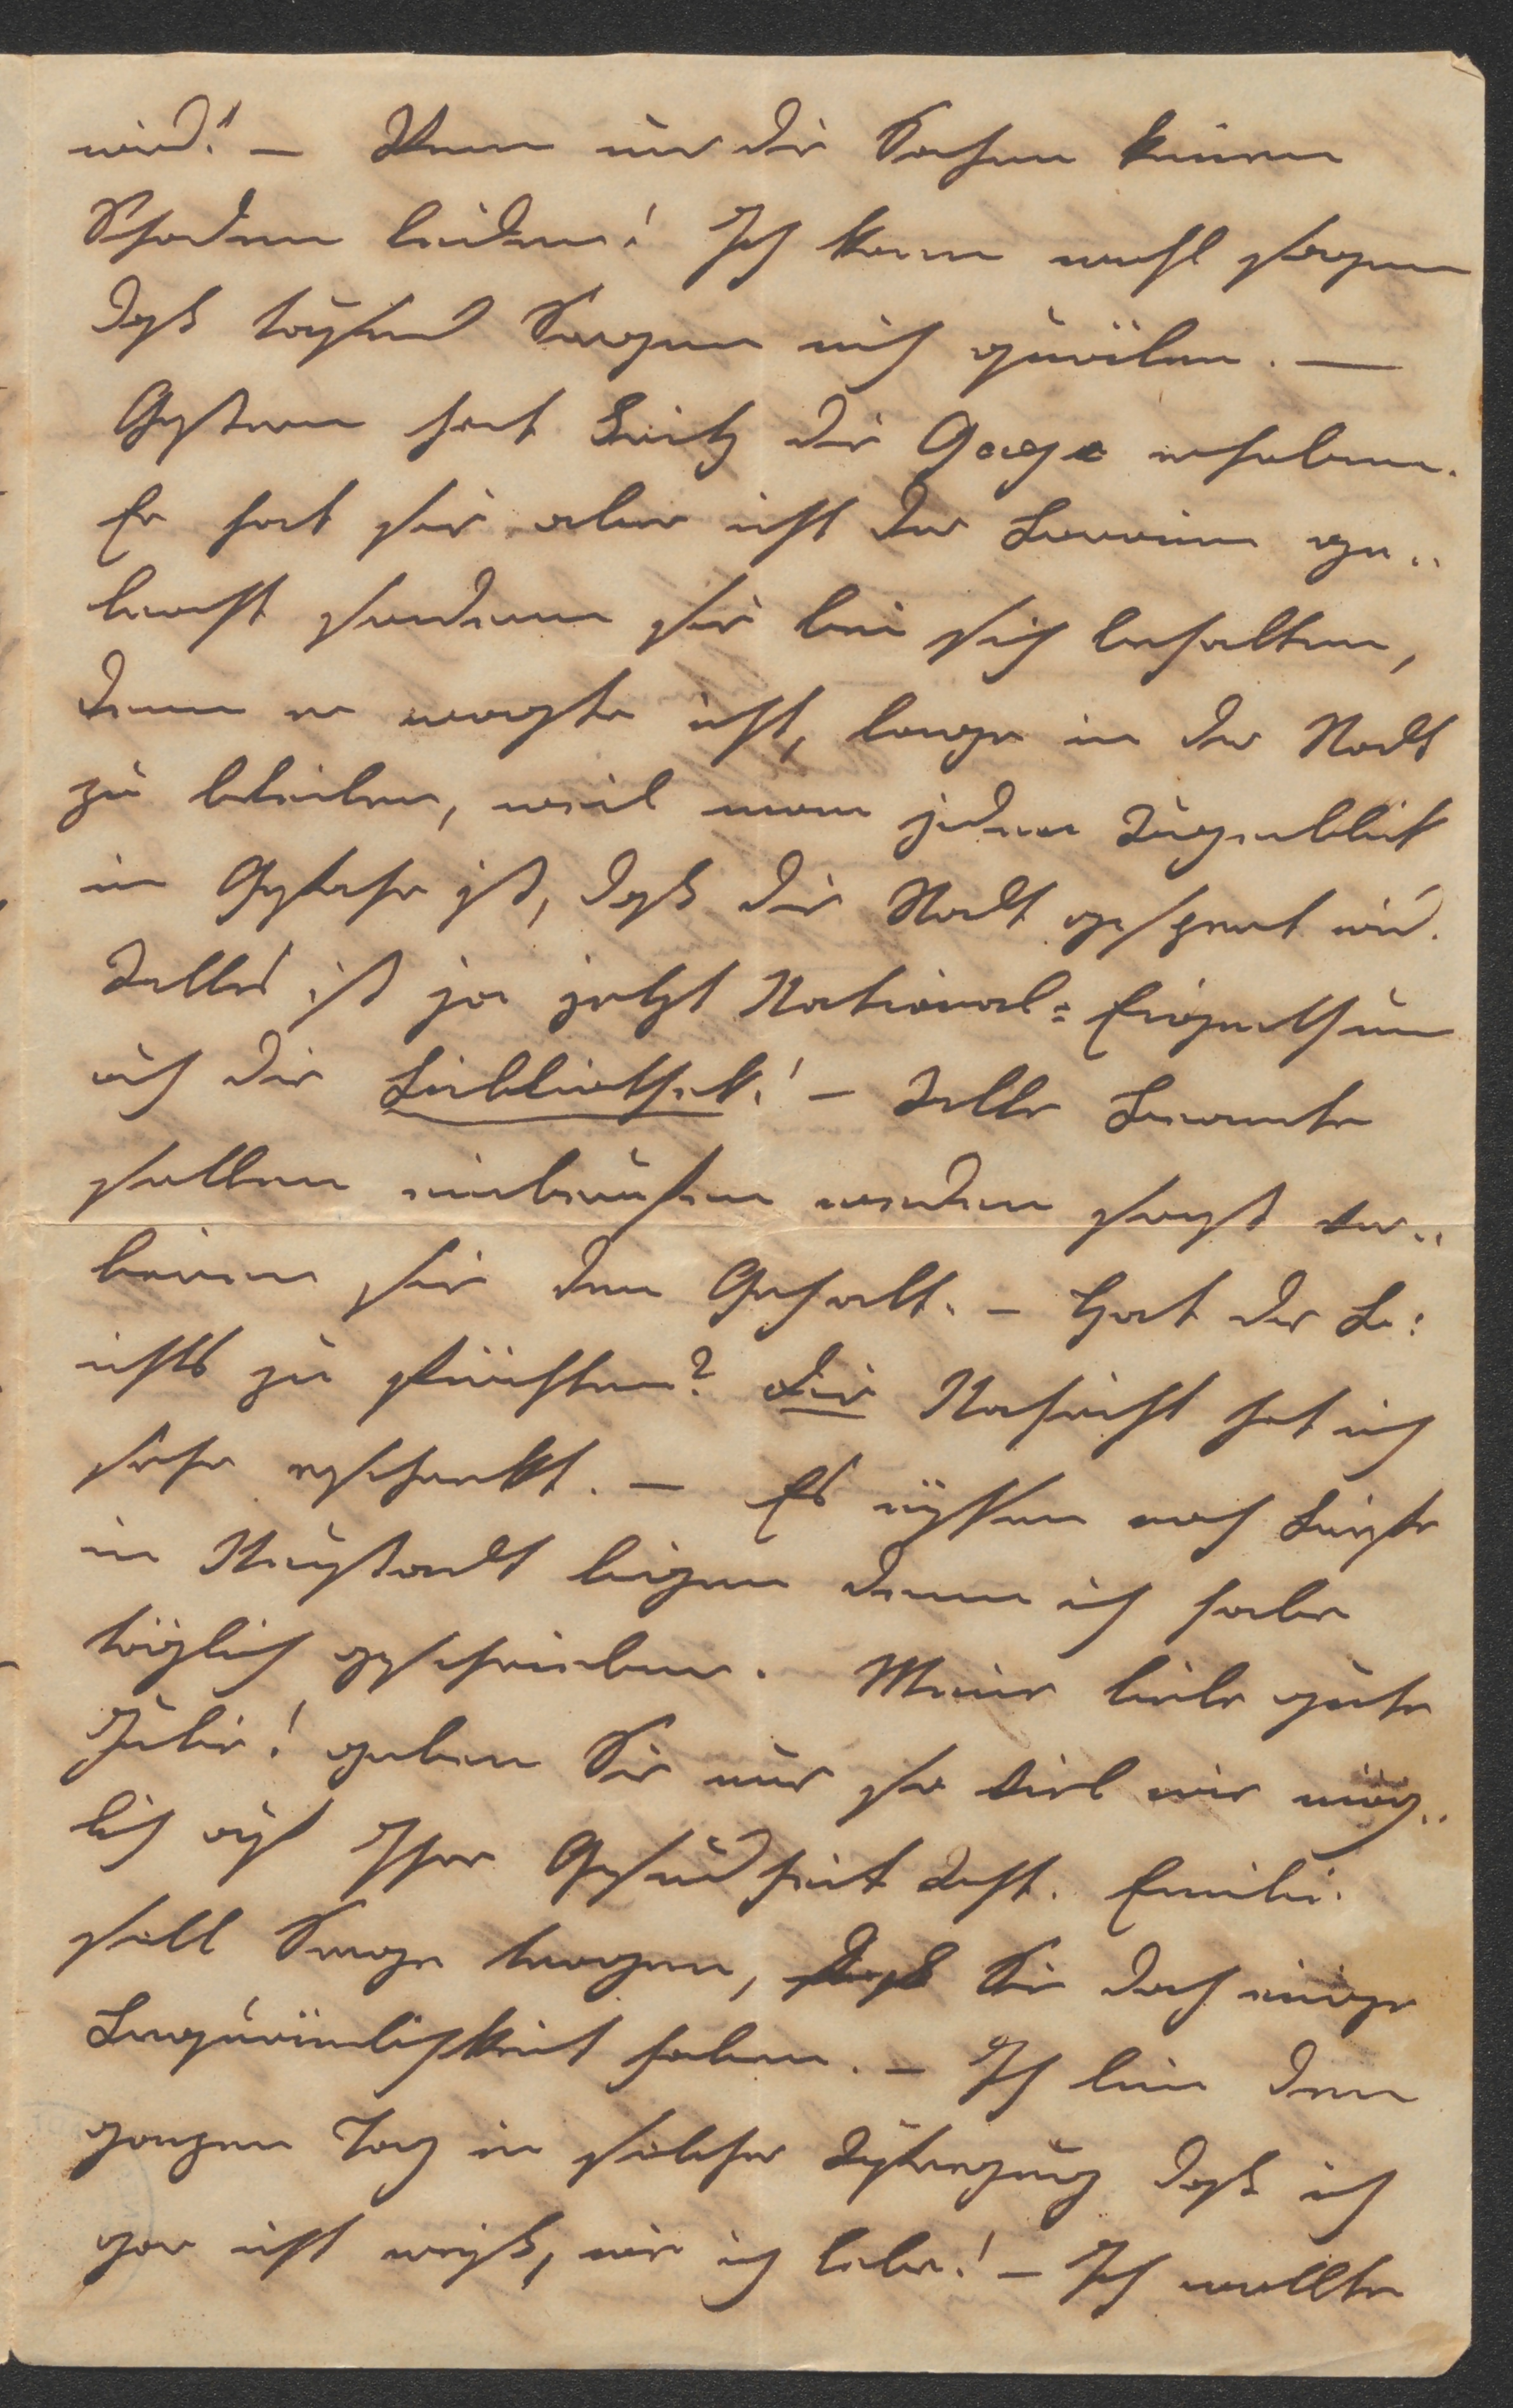 wird! — Wenn nur die Sachen keinen
Schaden leiden! Ich kann wohl sagen
daß tausend Sorgen mich quälen. —
Gestern hat Seitz die Gage erhoben.
Er hat sie aber nicht der Baronin ge..
bracht sondern sie bei sich behalten,
denn er wagte nicht, lange in der Stadt
zu bleiben, weil man jeden Augenblick
in Gefahr ist, daß die Stadt gesperrt wird.
Alles ist ja jetzt National-Eigenthum
auch die Bibliothek! — Alle Beamte
sollen einberufen werden sonst ver..
lieren sie den Gehalt. — Hat der B:
nichts zu fürchten? Die Nachricht hat mich
sehr erschreckt. — Es müssen noch Briefe
in Neustadt liegen denn ich habe
täglich geschrieben. Meine liebe gute
Julie! geben Sie nur so viel wie mög..
lich auf Ihre Gesundheit Acht. Emilie
soll Sorge tragen, daß Sie doch einige
Bequemlichkeit haben. — Ich bin den
ganzen Tag in solcher Aufregung daß ich
gar nicht weiß, wie ich lebe! — Ich wollte